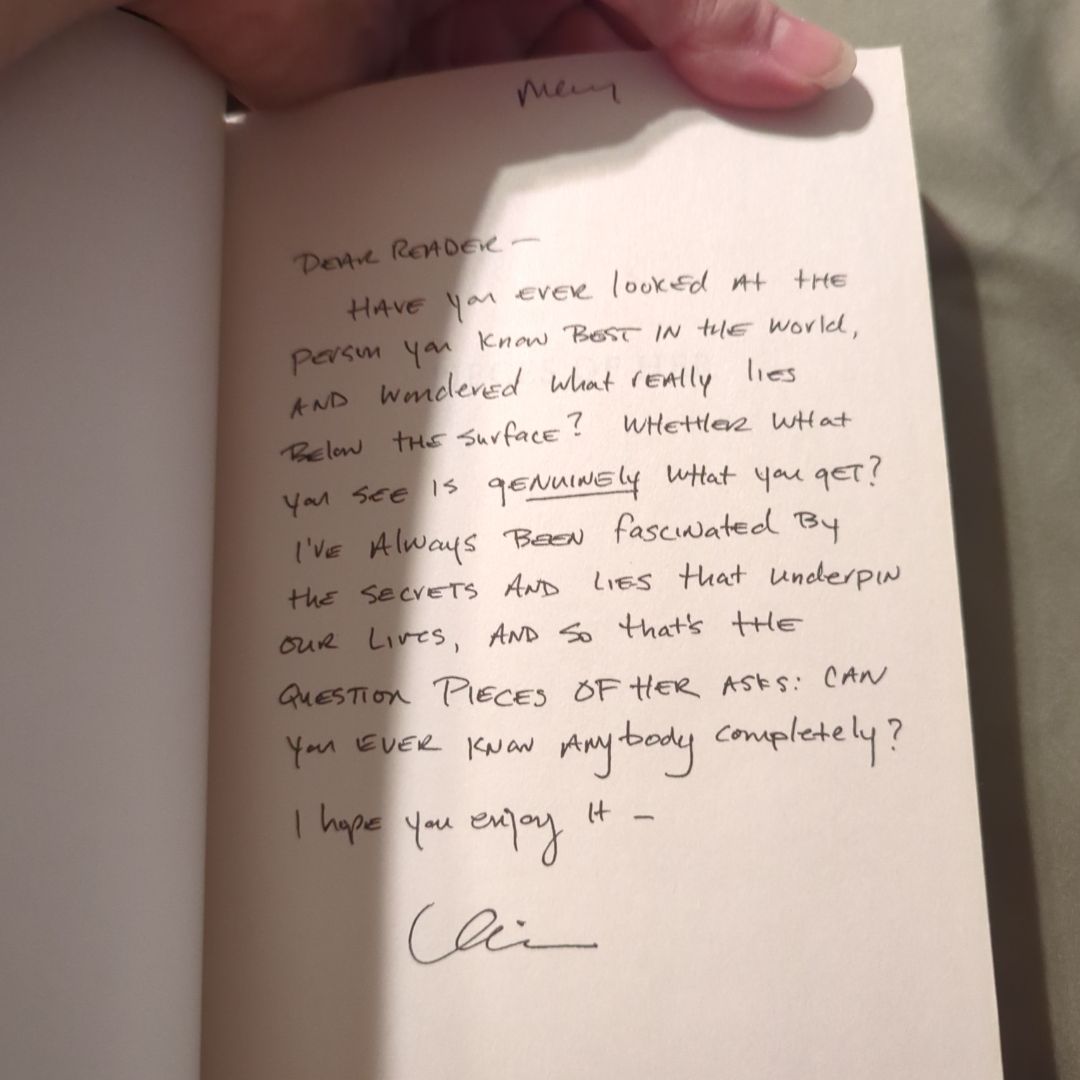 DEAR READER —
HAVE you EVER looked At tHE
person you know BEST IN tHE world,
AND wondered what rEALLy lies
BElow tHE surface? WHEtHER WHat
you SEE IS gENUINELy WHat you gET?
I'VE Always BEEN fascinated By
tHE SECrETS AND LIES that underpIN
OUR LIVES, AND so that's tHE
QUESTION PIECES OF HER ASKS: CAN
you EVER KNow ANybody completely?
I hopE you enjoy It —